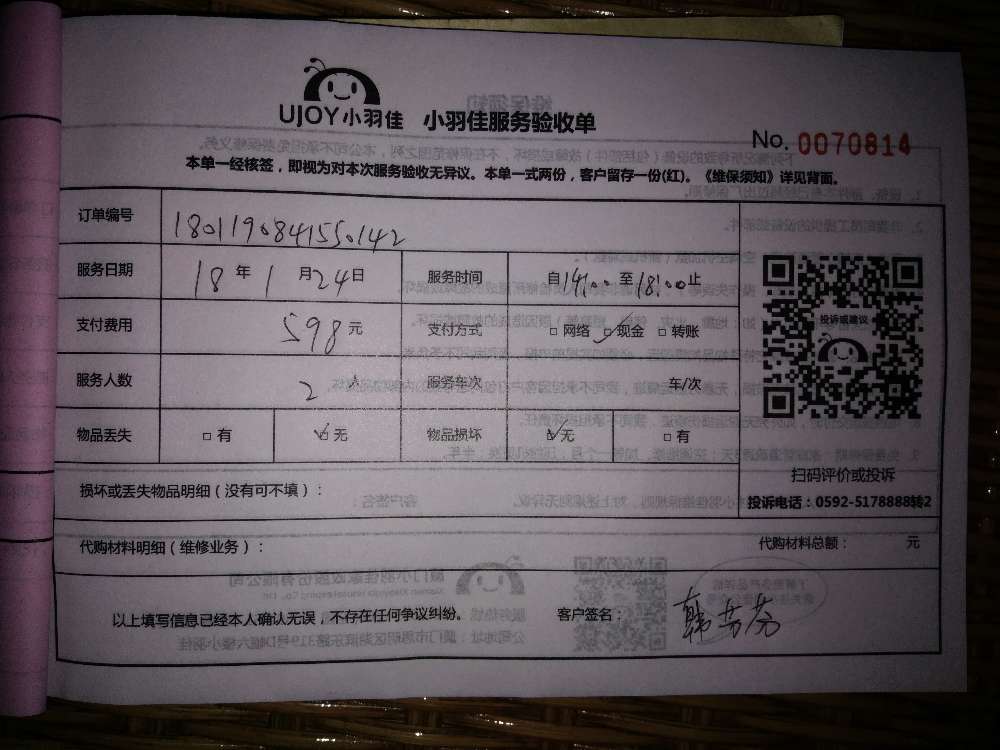 UJOY小羽佳 小羽佳服务验收单
No. 0070814
本单一经核签，即视为对本次服务验收无异议。本单一式两份，客户留存一份(红)。《维保须知》详见背面。
订单编号 1801190841550142
服务日期 18 年 1 月 24 日 服务时间 自 14:00 至 18:00 止
支付费用 598 元 支付方式 □ 网络 ☑ 现金 □ 转账
服务人数 2 人 服务车次 车/次
物品丢失 □ 有 ☑ 无 物品损坏 ☑ 无 □ 有
投诉或建议
扫码评价或投诉
投诉电话：0592-5178888转2
损坏或丢失物品明细（没有可不填）：
代购材料明细（维修业务）： 代购材料总额： 元
以上填写信息已经本人确认无误，不存在任何争议纠纷。 客户签名： 韩芳芬